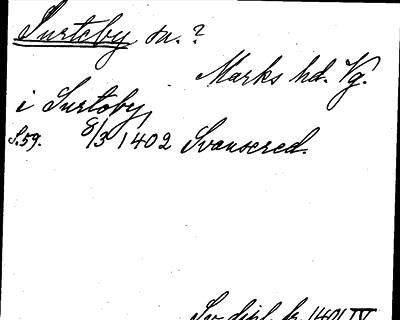 Surteby sn.?
Marks hd. Vg.
i Surtoby,
S.59. 8/3 1402 Svansered.
Sv. dipl. fr. 1401 IV